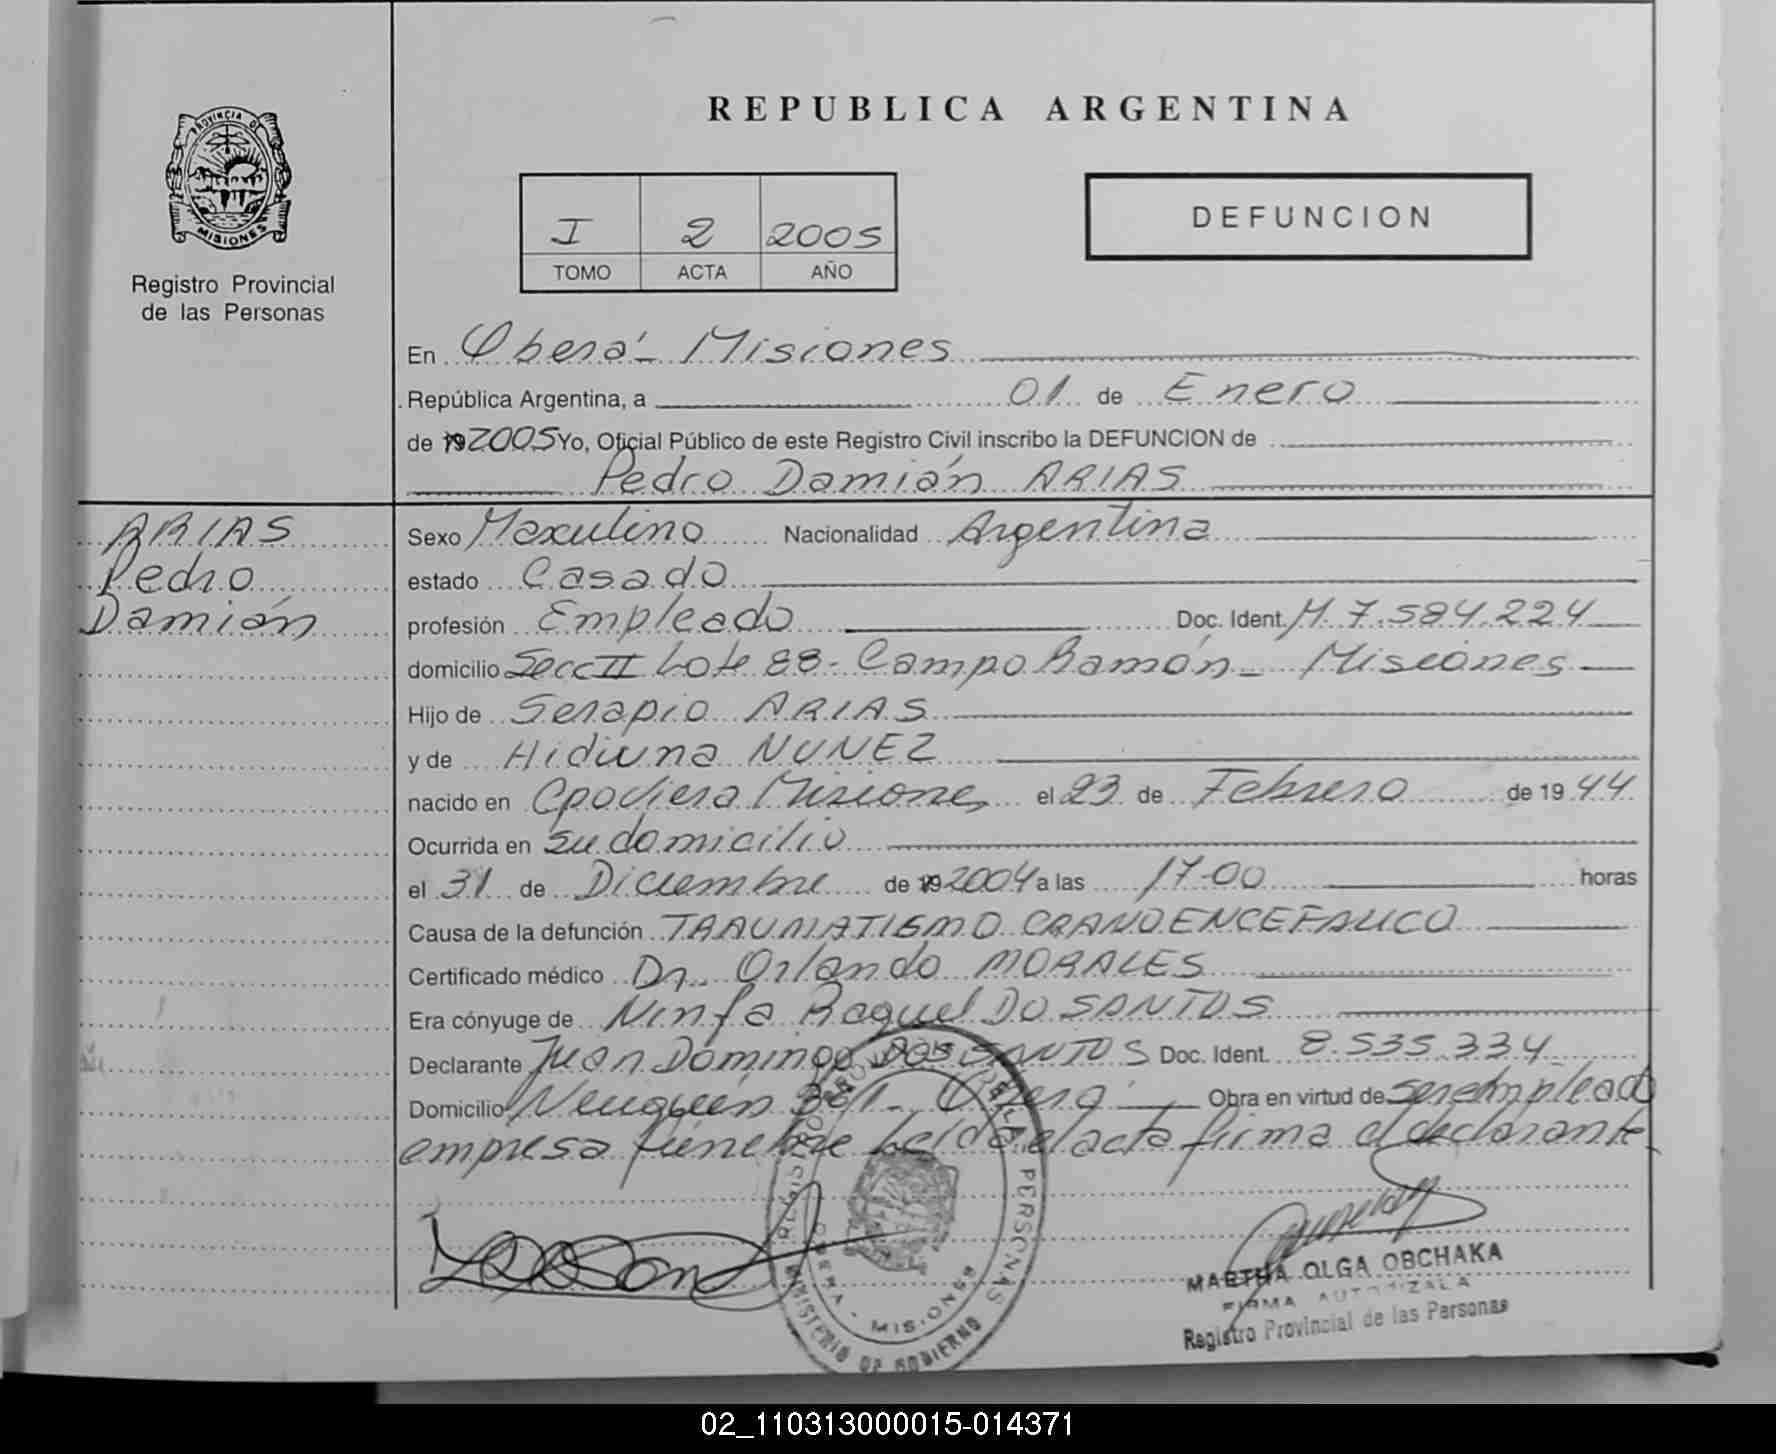 PROVINCIA DE
MISIONES
Registro Provincial
de las Personas
REPUBLICA ARGENTINA
I 2 2005
TOMO ACTA AÑO
DEFUNCION
En Oberá - Misiones
República Argentina, a 01 de Enero
de 19 2005 Yo, Oficial Público de este Registro Civil inscribo la DEFUNCION de
Pedro Damián ARIAS
ARIAS
Pedro
Damián
Sexo Masculino Nacionalidad Argentina
estado Casado
profesión Empleado Doc. Ident. M 7.584.224
domicilio Secc II Lote 88 - Campo Ramón - Misiones
Hijo de Serapio ARIAS
y de Hidiuna NUNEZ
nacido en Misiones el 23 de Febrero de 19 44
Ocurrida en su domicilio
el 31 de Diciembre de 19 2004 a las 17-00 horas
Causa de la defunción TRAUMATISMO CRANOENCEFALICO
Certificado médico Dr. Orlando MORALES
Era cónyuge de Ninfa Raquel DO SANTOS
Declarante Juan Domingo DOS SANTOS Doc. Ident. 8.535.334
Domicilio Neuquén - Oberá Obra en virtud de ser empleado
empresa fúnebre Leída el acta firma el declarante
REGISTRO PROVINCIAL DE LAS PERSONAS
OBERA - MISIONES
MINISTERIO DE GOBIERNO
MARTHA OLGA OBCHAKA
FIRMA AUTORIZADA
Registro Provincial de las Personas
02_110313000015-014371